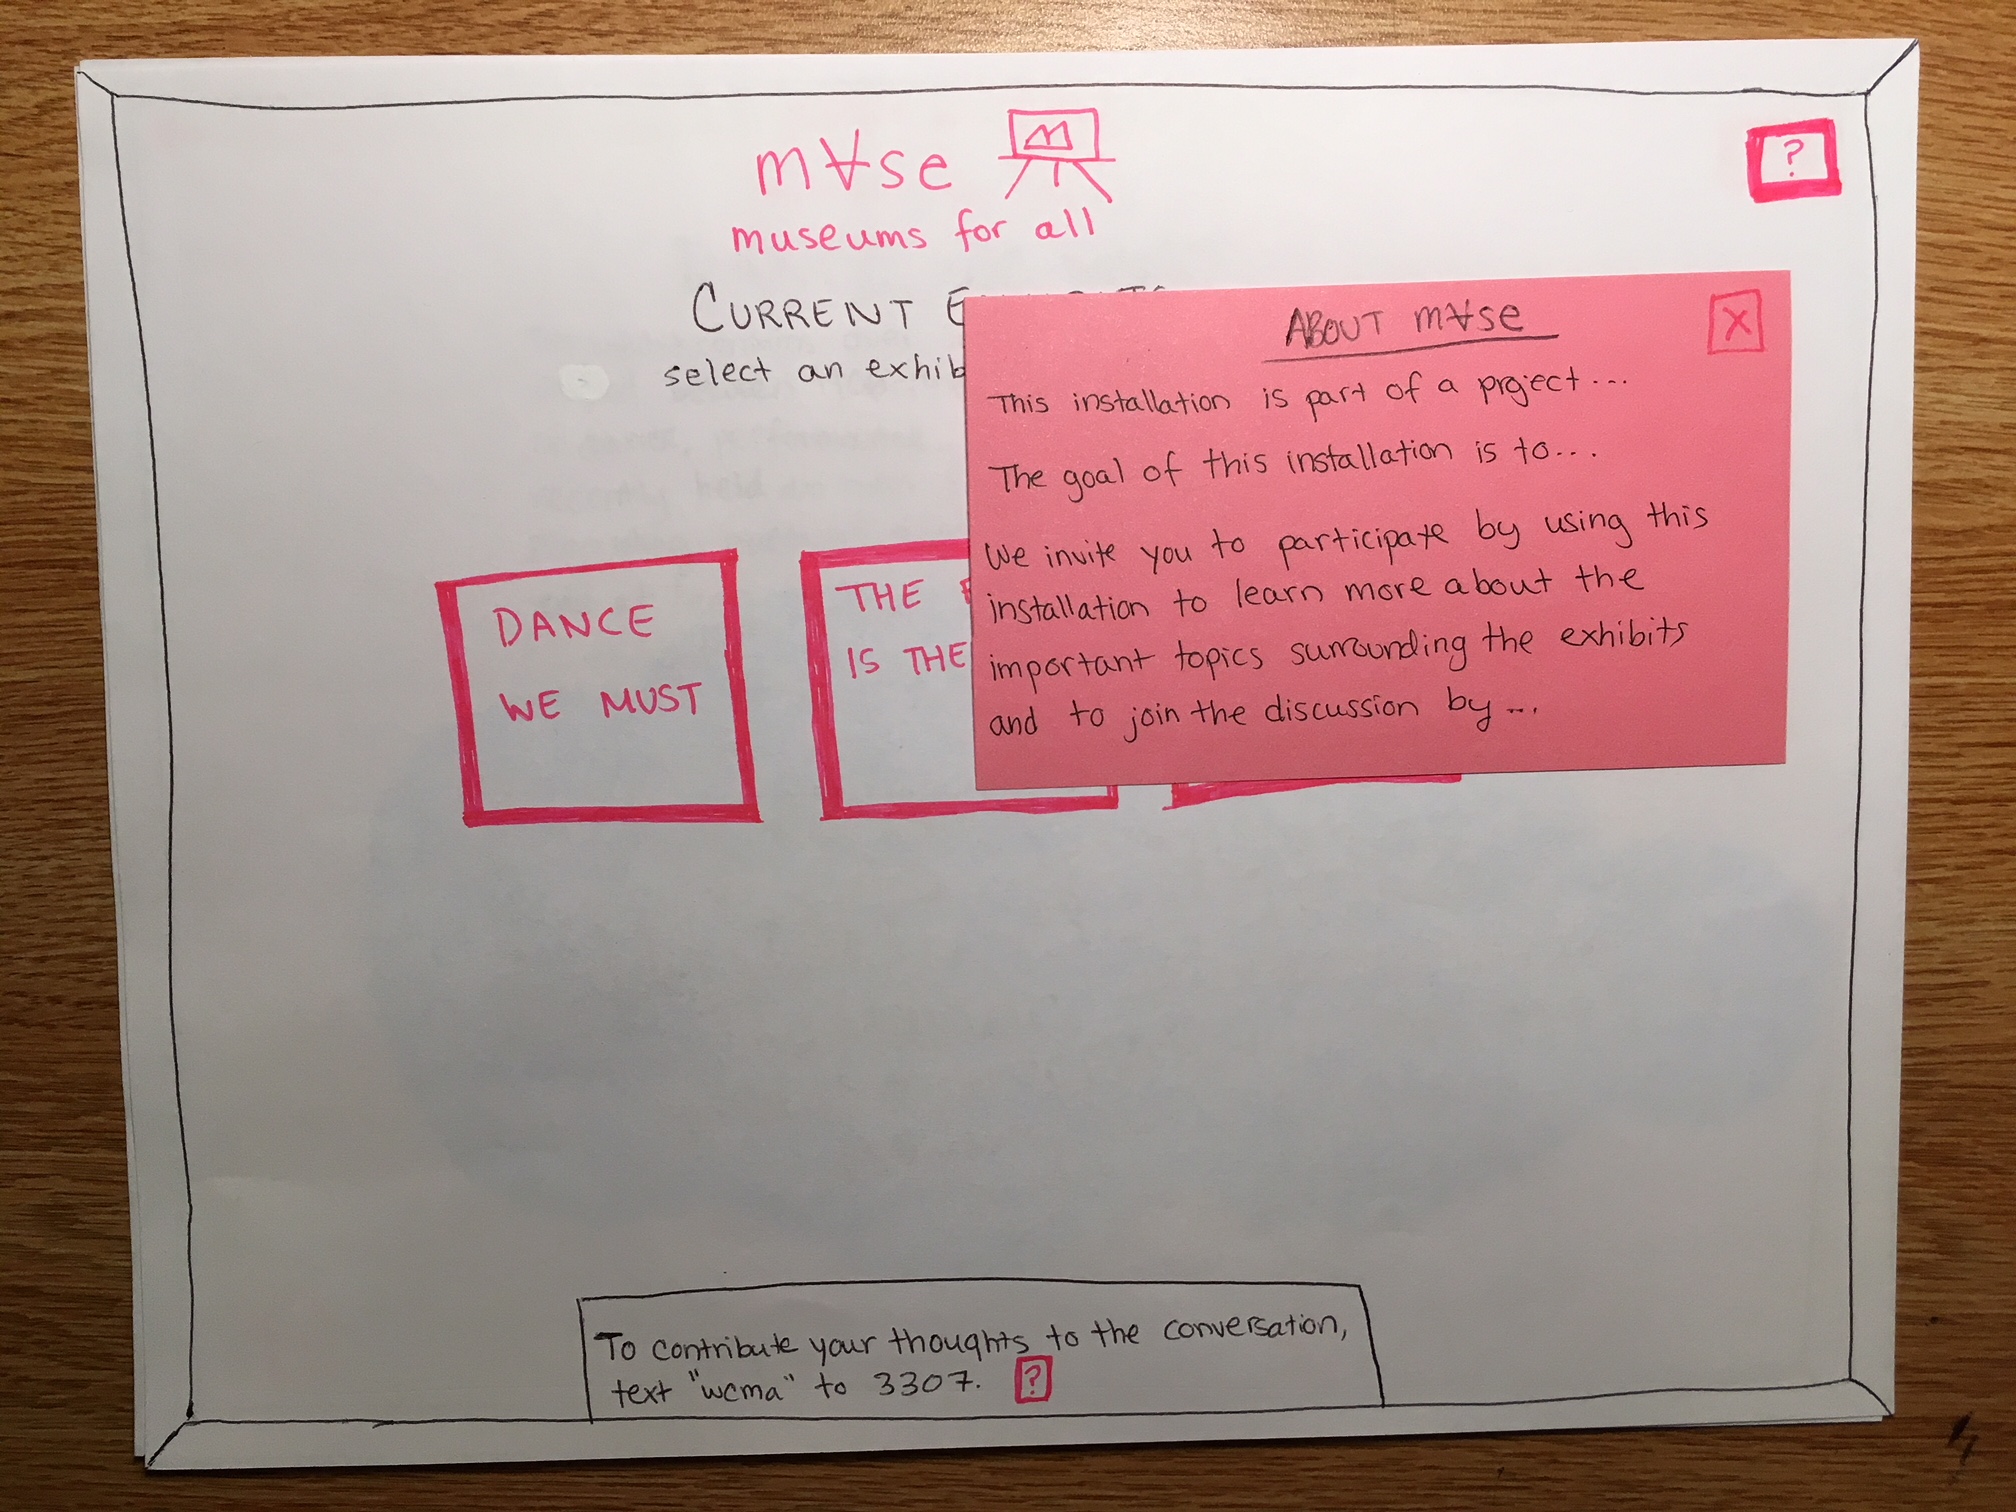 m∀se
museums for all
?
CURRENT
select an exhib
ABOUT m∀se
X
This installation is part of a project...
The goal of this installation is to...
We invite you to participate by using this
installation to learn more about the
important topics surrounding the exhibits
and to join the discussion by...
DANCE
WE MUST
THE
IS THE
To contribute your thoughts to the conversation,
text "wcma" to 3307. ?